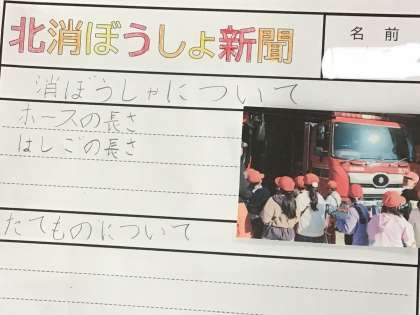 北消ぼうしょ新聞
名前
消ぼうしゃについて
ホースの長さ
はしごの長さ
たてものについて